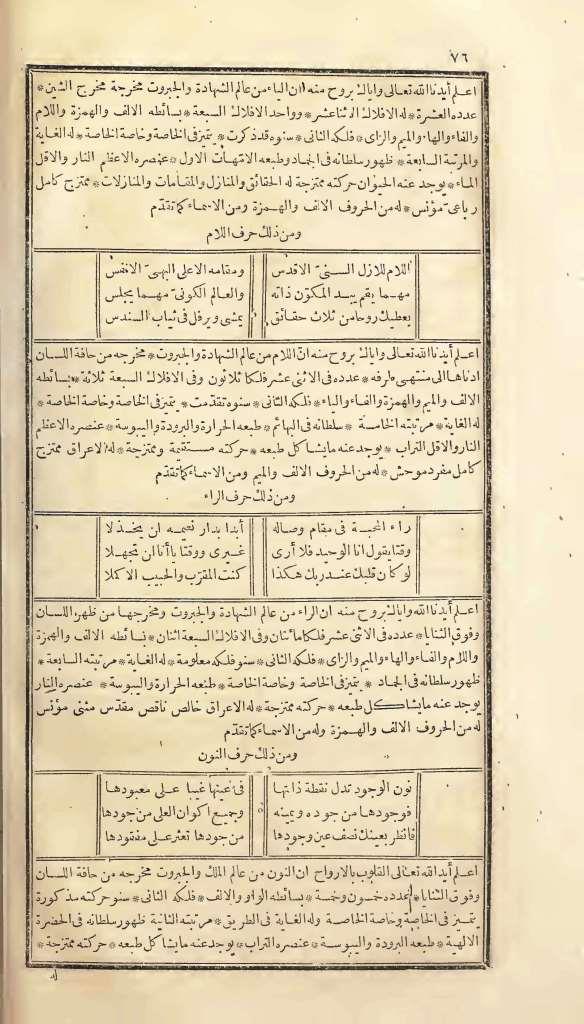 ٧٦
اعلم أيدنا الله تعالى واياك بروح منه ان الياء من عالم الشهادة والجبروت مخرجه مخرج الشين *
عدده العشرة * له الافلاك الاثنا عشر * وواحد الافلاك السبعة * بسائطه الالف والهمزة واللام
والفاء والهاء والميم والزاى * فلكه الثانى * سنوه قد ذكرت * يتميز فى الخاصة وخاصة الخاصة * له الغاية
والمرتبة السابعة * ظهور سلطانه فى الجماد وطبعه الامتهات الاول * عنصره الاعظم النار والاقل
الماء * يوجد عنه الحيوان حركته ممتزجة له الحقائق والمنازل والمقامات والمنازلات * ممتزج كامل
رباعى مؤنس * له من الحروف الالف والهمزة ومن الاسماء كما تقدّم
ومن ذلك حرف اللام
اللام للازل السنىّ الاقدس ومقامه الاعلى البهىّ الانفس
مهما يقم يبد المكوّن ذاته والعالم الكونىّ مهما يجلس
يعطيك روحا من ثلاث حقائق يمشى ويرفل فى ثياب السندس
اعلم أيدنا الله تعالى واياك بروح منه انّ اللام من عالم الشهادة والجبروت * مخرجه من حافة اللسان
ادناها الى منتهى طرفه * عدده فى الاثنى عشر فلكا ثلاثون وفى الافلاك السبعة ثلاثة * بسائطه
الالف والميم والهمزة والفاء والياء * فلكه الثانى * سنوه تقدّمت * يتميز فى الخاصة وخاصة الخاصة *
له الغاية * مرتبته الخامسة * سلطانه فى البهائم * طبعه الحرارة والبرودة واليبوسة * عنصره الاعظم
النار والاقل التراب * يوجد عنه مايشاكل طبعه * حركته مستقيمة وممتزجة * له الاعراق ممتزج
كامل مفرد موحش * له من الحروف الالف والميم ومن الاسماء كما تقدّم
ومن ذلك حرف الراء
راء المحبة فى مقام وصاله أبدا بدار نعيمه ان يخذلا
وقتا يقول انا الوحيد فلا أرى غيرى ووقتا يا أنا ان تجهلا
لو كان قلبك عند ربك هكذا كنت المقرّب والحبيب الاكملا
اعلم أيدنا الله واياك بروح منه ان الراء من عالم الشهادة والجبروت ومخرجها من ظهر اللسان
وفوق الثنايا * عدده فى الاثنى عشر فلكا مأتان وفى الافلاك السبعة اثنان * بسائطه الالف والهمزة
واللام والفاء والهاء والميم والزاى * فلكه الثانى * سنو فلكه معلومة * له الغاية * مرتبته السابعة *
ظهور سلطانه فى الجماد * يتميز فى الخاصة وخاصة الخاصة * طبعه الحرارة واليبوسة * عنصره النار
يوجد عنه مايشاكل طبعه * حركته ممتزجة * له الاعراق خالص ناقص مقدّس مثنى مؤنس
له من الحروف الالف والهمزة وله من الاسماء كما تقدّم
ومن ذلك حرف النون
نون الوجود تدل نقطة ذاتها فى عينها غيبا على معبودها
فوجودها من جوده ويمينه وجميع اكوان العلى من جودها
فانظر بعينك نصف عين وجودها من جودها تعثر على مفقودها
اعلم أيد الله تعالى القلوب بالارواح ان النون من عالم الملك والجبروت مخرجه من حافة اللسان
وفوق الثنايا * عدده خمسون وخمسة * بسائطه الواو والالف * فلكه الثانى * سنو حركته مذكورة
يتميز فى الخاصة وخاصة الخاصة وله الغاية فى الطريق * مرتبته الثانية ظهور سلطانه فى الحضرة
الالهية * طبعه البرودة واليبوسة * عنصره التراب * يوجد عنه مايشاكل طبعه * حركته ممتزجة *
له